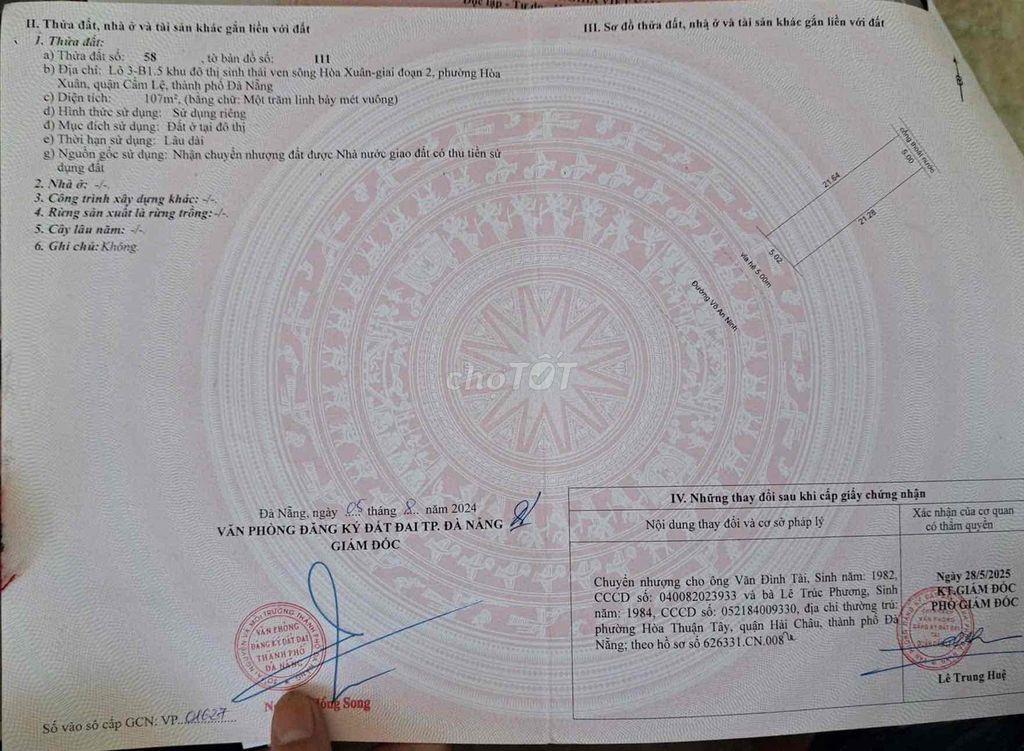 Độc lập - Tự do
II. Thửa đất, nhà ở và tài sản khác gắn liền với đất
1. Thửa đất:
a) Thửa đất số: 58 , tờ bản đồ số: 111
b) Địa chỉ: Lô 3-B1.5 khu đô thị sinh thái ven sông Hòa Xuân-giai đoạn 2, phường Hòa
Xuân, quận Cẩm Lệ, thành phố Đà Nẵng
c) Diện tích: 107m², (bằng chữ: Một trăm linh bảy mét vuông)
d) Hình thức sử dụng: Sử dụng riêng
đ) Mục đích sử dụng: Đất ở tại đô thị
e) Thời hạn sử dụng: Lâu dài
g) Nguồn gốc sử dụng: Nhận chuyển nhượng đất được Nhà nước giao đất có thu tiền sử
dụng đất
2. Nhà ở: -/-.
3. Công trình xây dựng khác: -/-.
4. Rừng sản xuất là rừng trồng: -/-.
5. Cây lâu năm: -/-.
6. Ghi chú: Không.
Đà Nẵng, ngày 05 tháng 8 năm 2024
VĂN PHÒNG ĐĂNG KÝ ĐẤT ĐAI TP. ĐÀ NẴNG
GIÁM ĐỐC
VĂN PHÒNG
ĐĂNG KÝ ĐẤT ĐAI
THÀNH PHỐ
ĐÀ NẴNG
Hồng Song
Số vào sổ cấp GCN: VP 01627
III. Sơ đồ thửa đất, nhà ở và tài sản khác gắn liền với đất
cống thoát nước
5.00
21.64
21.28
5.02
vỉa hè 5.00m
Đường Võ An Ninh
choTỐT
IV. Những thay đổi sau khi cấp giấy chứng nhận
Nội dung thay đổi và cơ sở pháp lý
Xác nhận của cơ quan
có thẩm quyền
Chuyển nhượng cho ông Văn Đình Tài, Sinh năm: 1982,
CCCD số: 040082023933 và bà Lê Trúc Phương, Sinh
năm: 1984, CCCD số: 052184009330, địa chỉ thường trú:
phường Hòa Thuận Tây, quận Hải Châu, thành phố Đà
Nẵng; theo hồ sơ số 626331.CN.008
Ngày 28/5/2025
KT.GIÁM ĐỐC
PHÓ GIÁM ĐỐC
VĂN PHÒNG
ĐĂNG KÝ ĐẤT ĐAI
Lê Trung Huệ